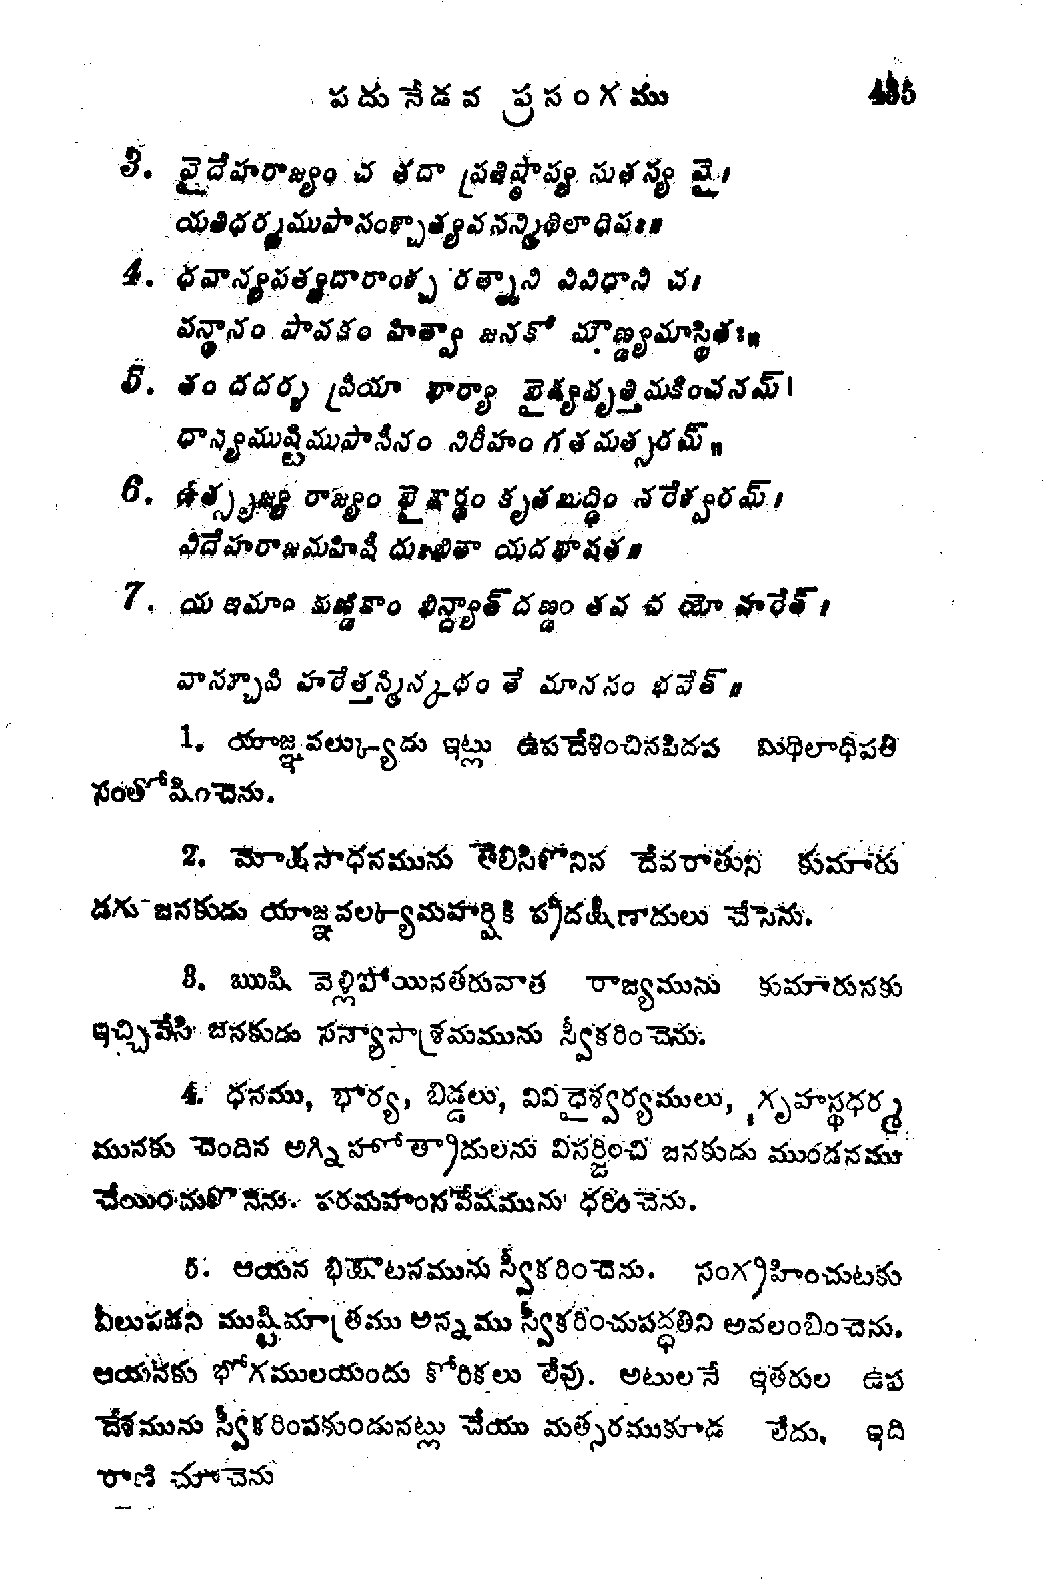 పదునేడవ ప్రసంగము 435
3. వైదేహరాజ్యం చ తదా ప్రతిష్ఠాప్య సుతస్య వై।
యతిధర్మముపాసంశ్చాత్యవసన్మిథిలాధిపః॥
4. ధవాన్యపత్యదారాంశ్చ రత్నాని వివిధాని చ।
పన్థానం పావకం హిత్వా జనకో మౌణ్డ్యమాస్థితః॥
5. తం దదర్శ ప్రియా భార్యా భైక్ష్యవృత్తిమకించనమ్।
ధాన్యముష్టిముపాసీనం నిరీహం గతమత్సరమ్॥
6. ఉత్సృజ్య రాజ్యం భైక్షార్థం కృతబుద్ధిం నరేశ్వరమ్।
విదేహరాజమహిషీ దుఃఖితా యదభాషత॥
7. య ఇమాం కుణ్డికాం భిన్ద్యాత్ దణ్డం తవ చ యో హరేత్।
వాసశ్చాపి హరేత్తస్మిన్కథం తే మానసం భవేత్॥
1. యాజ్ఞవల్క్యుడు ఇట్లు ఉపదేశించినపిదప మిథిలాధిపతి
సంతోషించెను.
2. మోక్షసాధనమును తెలిసికొనిన దేవరాతుని కుమారు
డగు జనకుడు యాజ్ఞవల్క్యమహర్షికి ప్రదక్షిణాదులు చేసెను.
3. ఋషి వెళ్లిపోయినతరువాత రాజ్యమును కుమారునకు
ఇచ్చివేసి జనకుడు సన్యాసాశ్రమమును స్వీకరించెను.
4. ధనము, భార్య, బిడ్డలు, వివిధైశ్వర్యములు, గృహస్థధర్మ
మునకు చెందిన అగ్నిహోత్రాదులను విసర్జించి జనకుడు ముండనము
చేయించుకొనెను. పరమహంసవేషమును ధరించెను.
5. ఆయన భిక్షాటనమును స్వీకరించెను. సంగ్రహించుటకు
వీలుపడని ముష్టిమాత్రము అన్నము స్వీకరించుపద్ధతిని అవలంబించెను.
ఆయనకు భోగములయందు కోరికలు లేవు. అటులనే ఇతరుల ఉప
దేశమును స్వీకరింపకుండునట్లు చేయు మత్సరముకూడ లేదు, ఇది
రాణి చూచెను